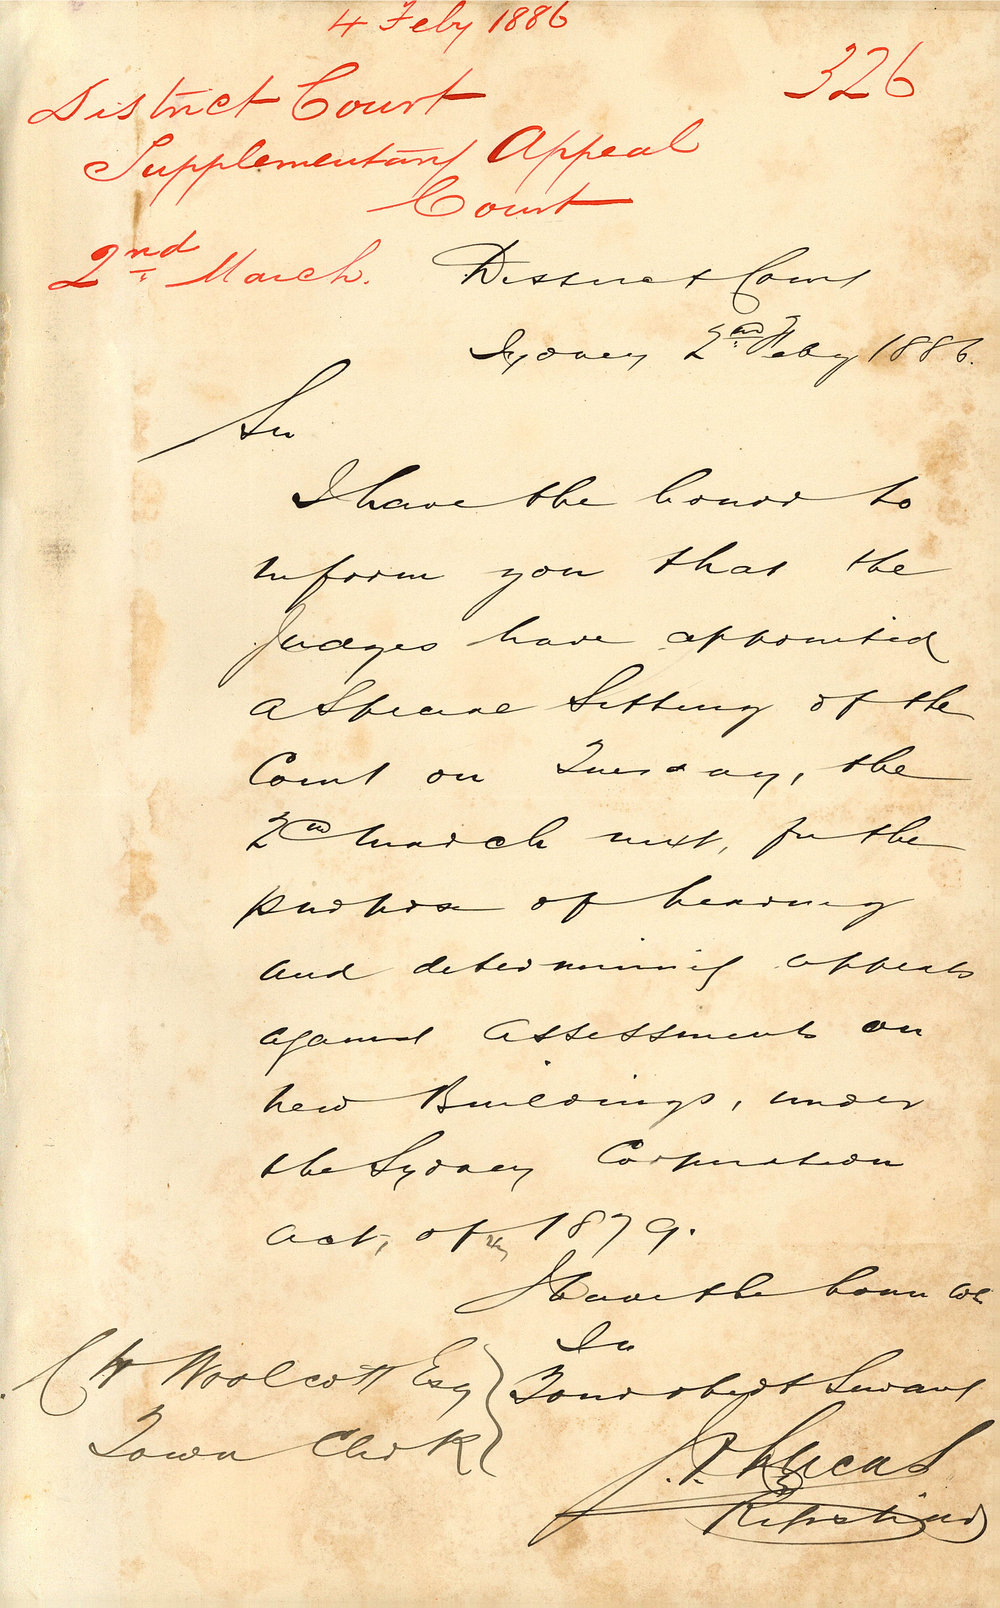 4 Feby 1886
326
District Court
Supplementary Appeal
Court
2nd March.
District Court
Sydney 2nd Feby 1886.
Sir
I have the honor to
inform you that the
Judges have appointed
a Special Sitting of the
Court on Tuesday, the
2nd March next, for the
purpose of hearing
and determining appeals
against assessments on
new Buildings, under
the Sydney Corporation
Act, of 1879.
I have the honor
Sir
Your obedt Servant
C H Woolcott Esq
Town Clerk
Lucas
Registrar